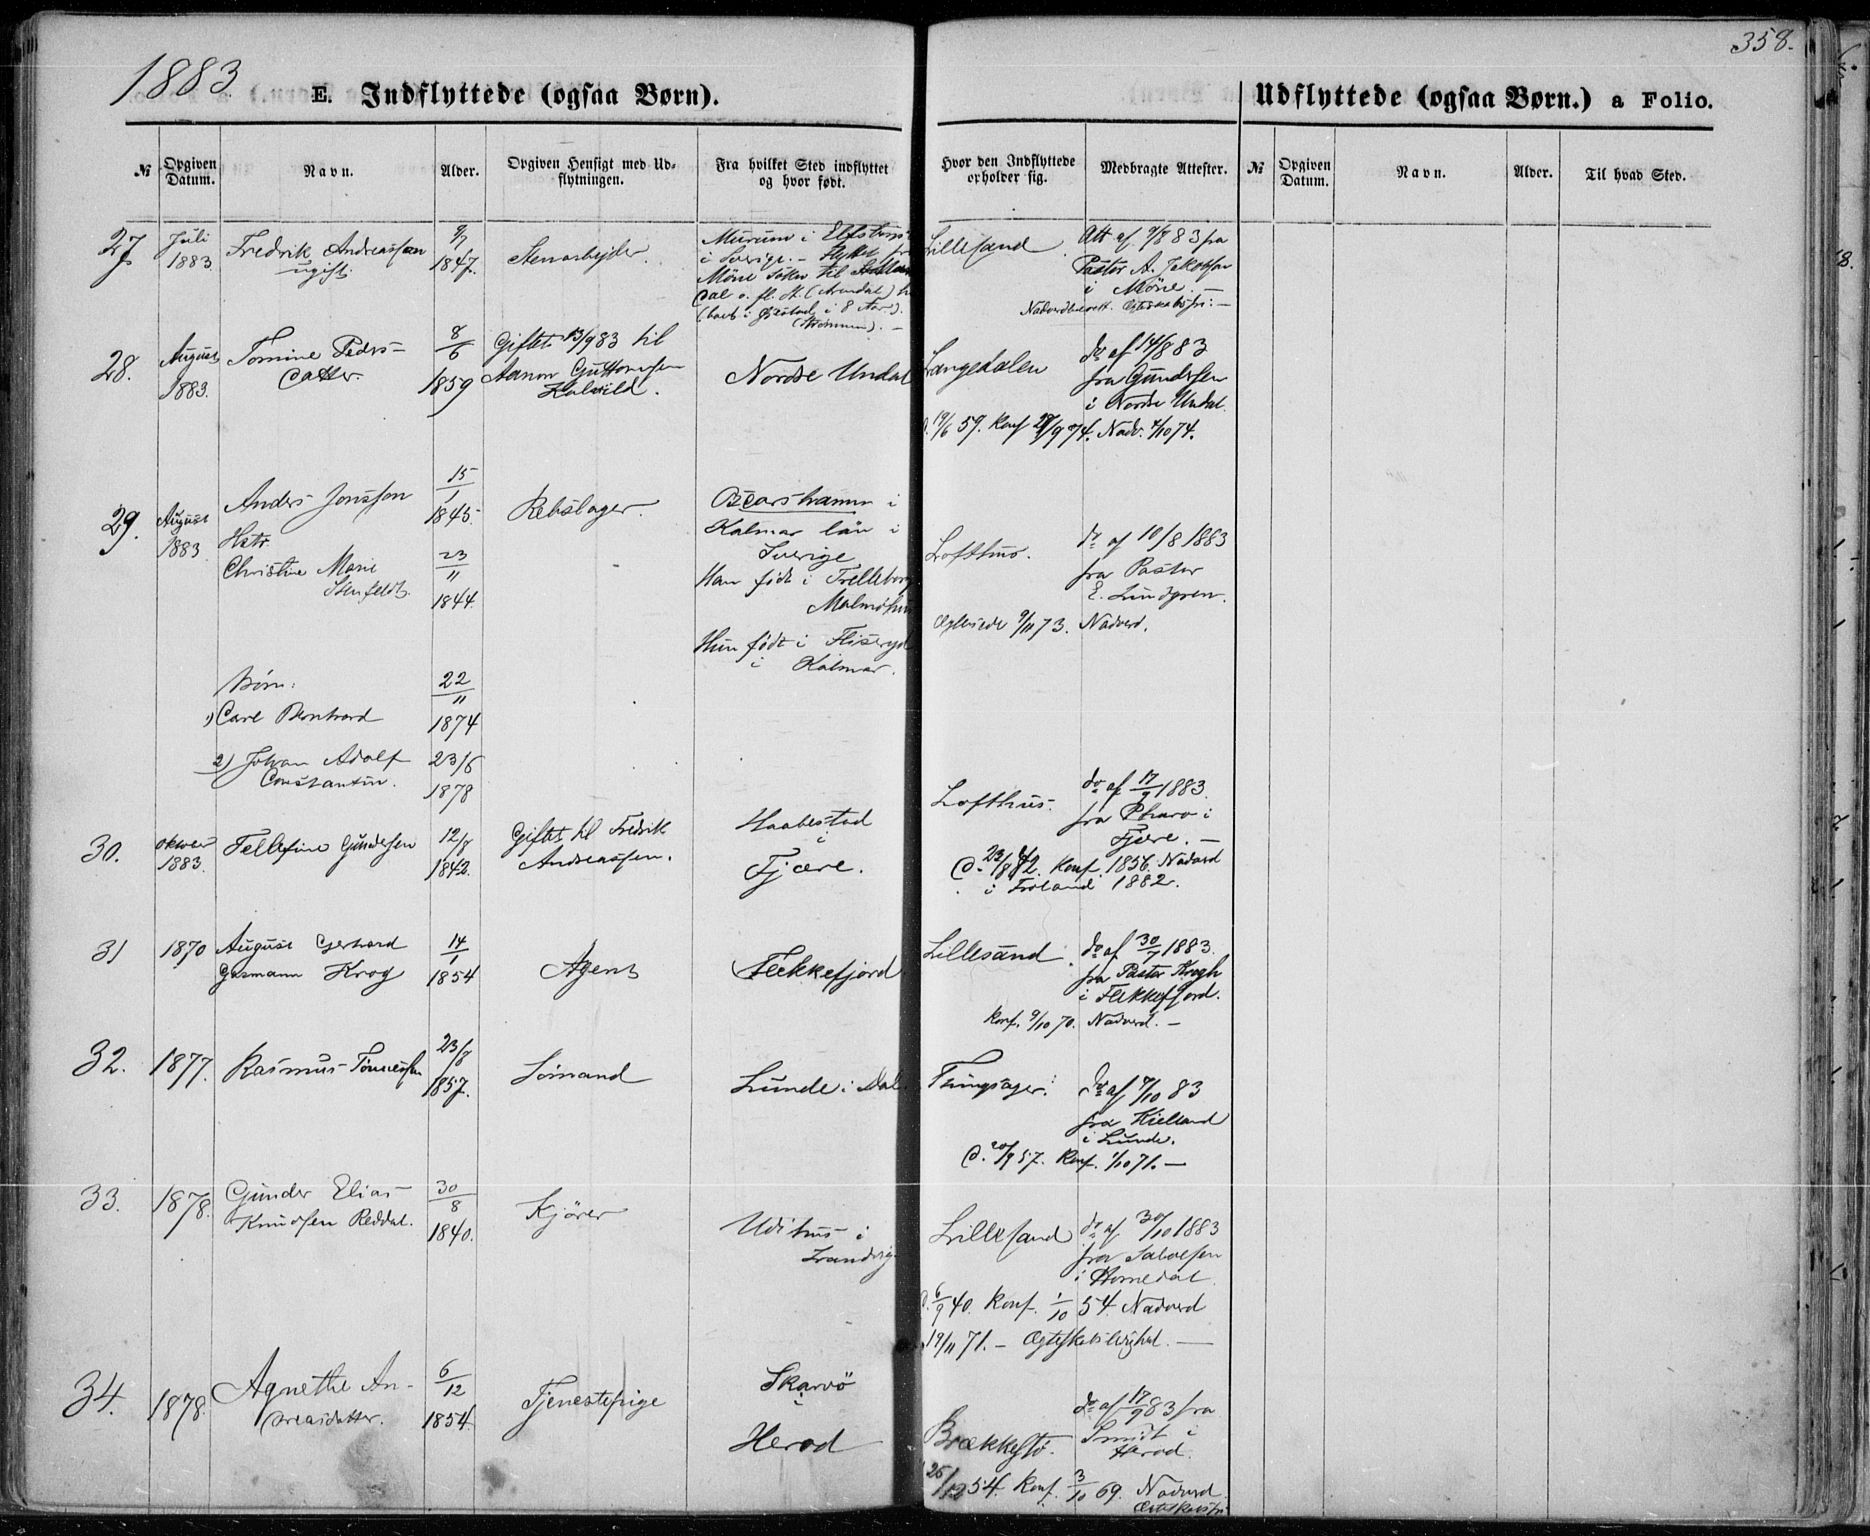 1883
358.
E. Indflyttede (ogsaa Børn).
Udflyttede (ogsaa Børn.) a Folio.
№ Opgiven Datum. Navn. Alder. Opgiven Hensigt med Udflytningen. Fra hvilket Sted indflyttet og hvor født. Hvor den Indflyttede opholder sig. Medbragte Attester. № Opgiven Datum. Navn. Alder. Til hvad Sted.
27. Juli 1883 Fredrik Andreassen
ugift.
9/7 1847.
Stenarbejder.
Murum i Elfsborgs
i Sverige. – flyttet fra
Möne Sokn til
Dal o. fl. St. (Arendal)
(boet i i 8 Aar).
Lillesand
Att af 9/8 83 fra
Pastor A. Jakobson
i Möne. –
28. August 1883. Tomine Peders-
datter.
8/6 1859
Giftet 13/9 83 til
Aanon Guttormsen
Kalvild.
Nordre Undal
Langedalen
do af 14/8 83
fra Gundersen
i Nordre Undal.
19/6 59. Konf 27/9 74. Nadv. 4/10 74.
29. August 1883 Anders Jonsson
15/1 1845.
Hstr
Christine Marie
Stenfeldt.
23/11 1844.
Rebslager.
Oscarshamn i
Kalmar län i
Sverige
Han født i Trelleborg
Malmöhus
Hun født i Fliseryd
i Kalmar.
Lofthus.
do af 10/8 1883
fra Pastor
E. Lundgren.
Ægteviede 9/11 73. Nadverd.
Børn:
1) Carl Bernhard
22/11 1874
2) Johan Adolf
Constantin.
23/6 1878
30. oktober 1883. Tellefine Gundersen
12/8 1842.
Giftet til Fredrik
Andreassen.
Haabestad
i
Fjære.
Lofthus.
do af 17/9 1883.
fra Pharo i
Fjære. –
D. 23/8 42. Konf. 1856. Nadverd
i Froland 1882.
31 1870 August Gerhard
Gasmann Krog
14/1 1854
Agent
Flekkefjord
Lillesand.
do af 30/7 1883.
fra Pastor Krogh
i Flekkefjord.
Konf. 9/10 70. Nadverd. –
32. 1877. Rasmus Tønnessen
23/8 1857.
Sömand
Lunde i Dal.
Tingsager.
do af 7/10 83
fra Kielland
i Lunde.
D. 20/9 57. Konf. 1/10 71. –
33. 1878. Gunder Elias
Knudsen Reddal.
30/8 1840.
Kjörer
Udihus i
Landvig
Lillesand
do af 30/10 1883
fra Salvesen
i Homedal.
6/9 40. Konf. 1/10 54. Nadverd
19/11 71. – Ægteskabsledighed. –
34. 1878. Agnethe An-
dreasdatter.
6/12 1854.
Tjenestepige
Skarvö
i
Herød
Brækkestø.
do af 17/9 83 fra
Smidt i
Herød.
26/12 54. Konf. 3/10 69. Nadverd